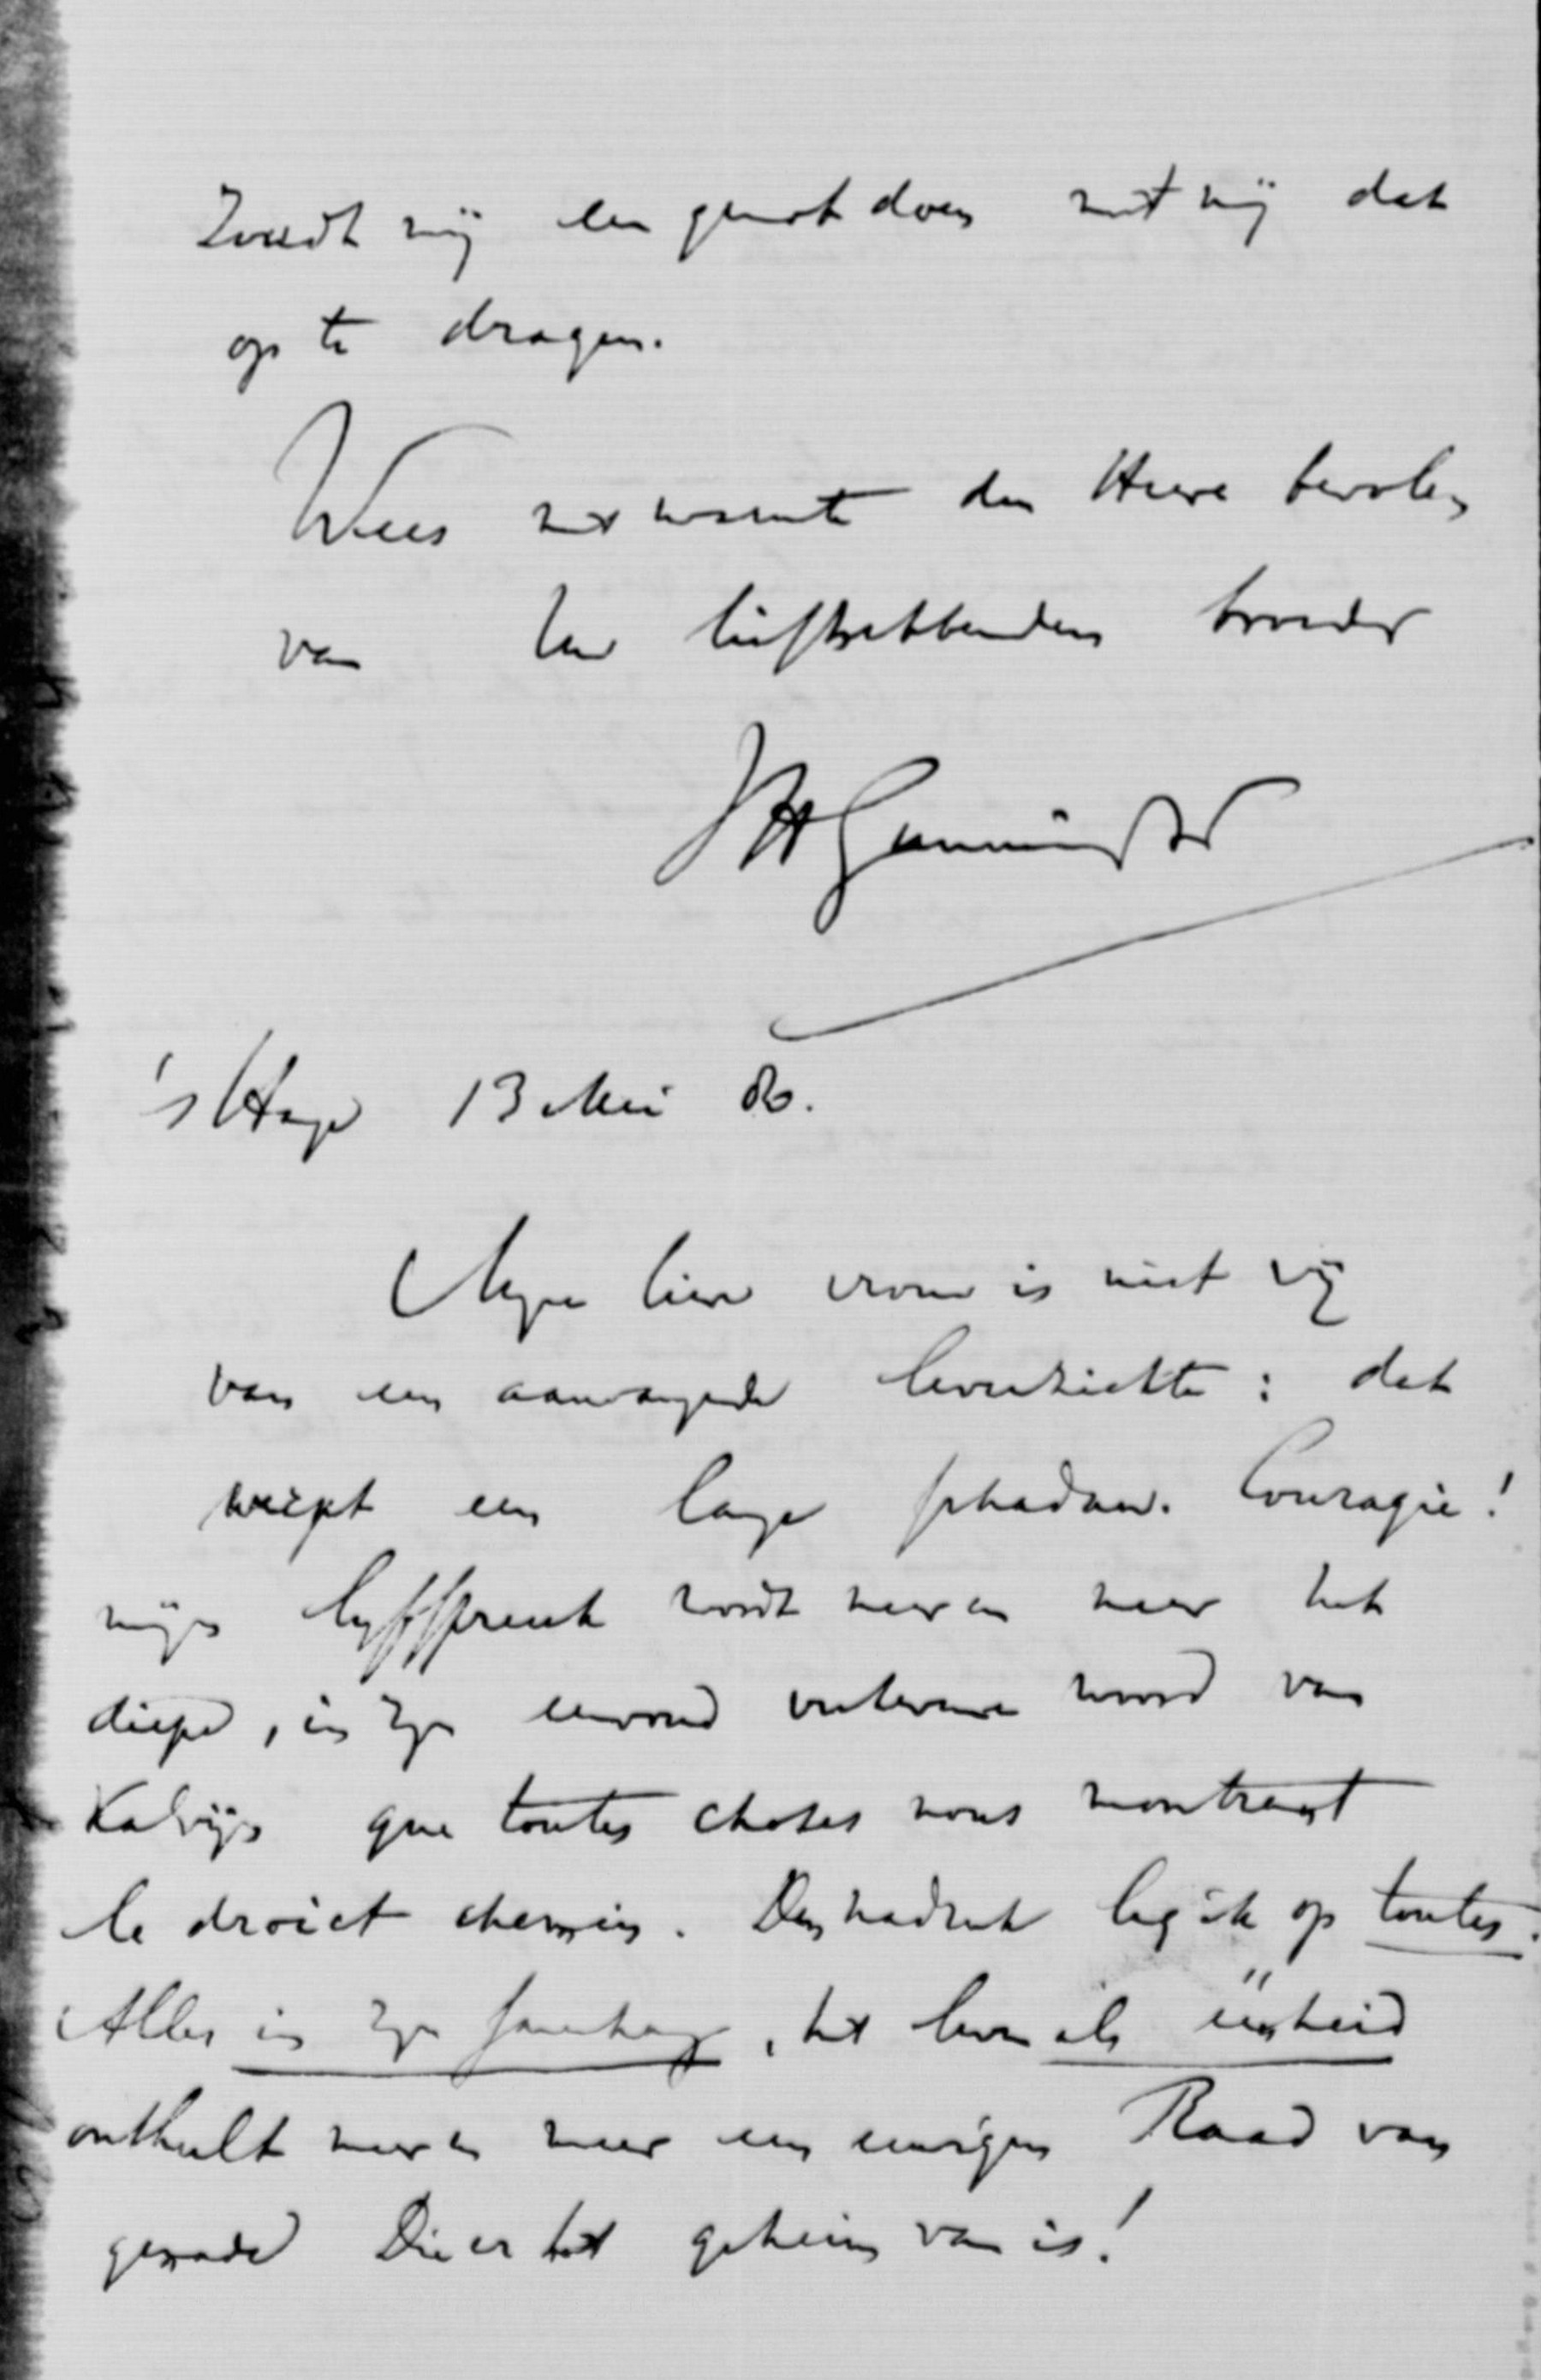 Zoudt mij een genot doen met mij dat
op te dragen.
Wees den Heere bevolen
van Uw liefhebbenden broeder
JHGunning JHr
's Hage 13 Mei 80.
Mijne lieve vrouw is niet vrij
van een aanvangende leverziekte: dat
werpt een lange schaduw. Couragie!
mijn lijfspreuk wordt meer en meer het
diepe, in zijn eenvoud woord van
Kalvijn que toutes choses nous montrent
le droict chemin. Den nadruk leg ik op toutes.
Alles in zijn samenhang, het leven als eenheid
onthult meer en meer een eeuwigen Raad van
genade Die er het geheim van is!